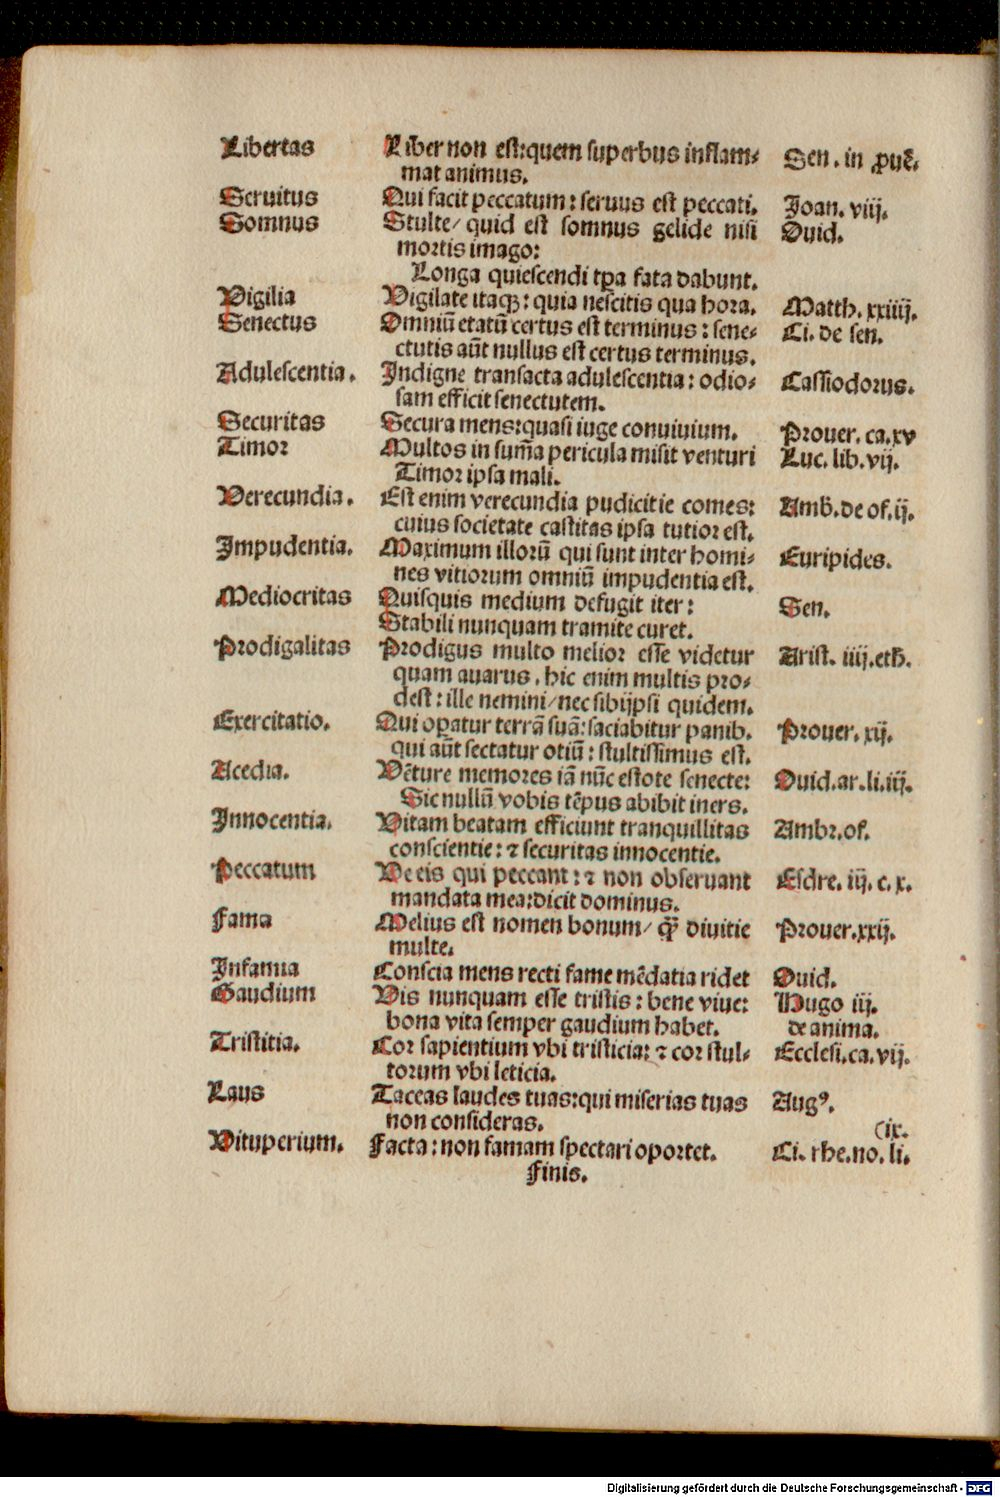 Libertas Liber non est:quem superbus inflam- Sen. in ꝓuē.
mat animus.
Seruitus Qui facit peccatum: seruus est peccati. Joan. viij.
Somnus Stulte/ quid est somnus gelide nisi Ouid.
mortis imago:
Longa quiescendi tꝑa fata dabunt.
Vigilia Vigilate itaqꝫ: quia nescitis qua hora. Matth. xxiiij.
Senectus Omniū etatū certus est terminus: sene- Ci. de sen.
ctutis aūt nullus est certus terminus.
Adulescentia. Indigne transacta adulescentia: odio- Cassiodorus.
sam efficit senectutem.
Securitas Secura mens:quasi iuge conuiuium. Prouer. ca.xv
Timor Multos in sum̄a pericula misit venturi Luc. lib. vij.
Timor ipsa mali.
Verecundia. Est enim verecundia pudicitie comes: Amb̄.de of.ij.
cuius societate castitas ipsa tutior est.
Impudentia. Maximum illorū qui sunt inter homi- Euripides.
nes vitiorum omniū impudentia est.
Mediocritas Quisquis medium defugit iter: Sen.
Stabili nunquam tramite curet.
Prodigalitas Prodigus multo melior esse videtur Arist. iiij.eth̄.
quam auarus. hic enim multis pro-
dest: ille nemini/ nec sibijpsi quidem.
Exercitatio. Qui oꝑatur terrā suā: saciabitur panib. Prouer. xij.
qui aūt sectatur otiū: stultissimus est.
Acedia. Vēture memores iā nūc estote senecte: Ouid.ar.li.iij.
Sic nullū vobis tēpus abibit iners.
Innocentia. Vitam beatam efficiunt tranquillitas Ambr.of.
conscientie: ⁊ securitas innocentie.
Peccatum Ve eis qui peccant: ⁊ non obseruant Esdre. iij. c. x.
mandata mea:dicit dominus.
Fama Melius est nomen bonum/ qꝫ̄ diuitie Prouer.xxij.
multe.
Infamia Conscia mens recti fame mēdatia ridet Ouid.
Gaudium Vis nunquam esse tristis: bene viue: Hugo iij.
bona vita semper gaudium habet. de anima.
Tristitia. Cor sapientium vbi tristicia: ⁊ cor stul- Ecclesi.ca.vij.
torum vbi leticia.
Laus Taceas laudes tuas:qui miserias tuas Augꝰ.
non consideras. (ix.
Vituperium. Facta: non famam spectari oportet. Ci. rhe.no. li.
Finis.
Digitalisierung gefördert durch die Deutsche Forschungsgemeinschaft - DFG